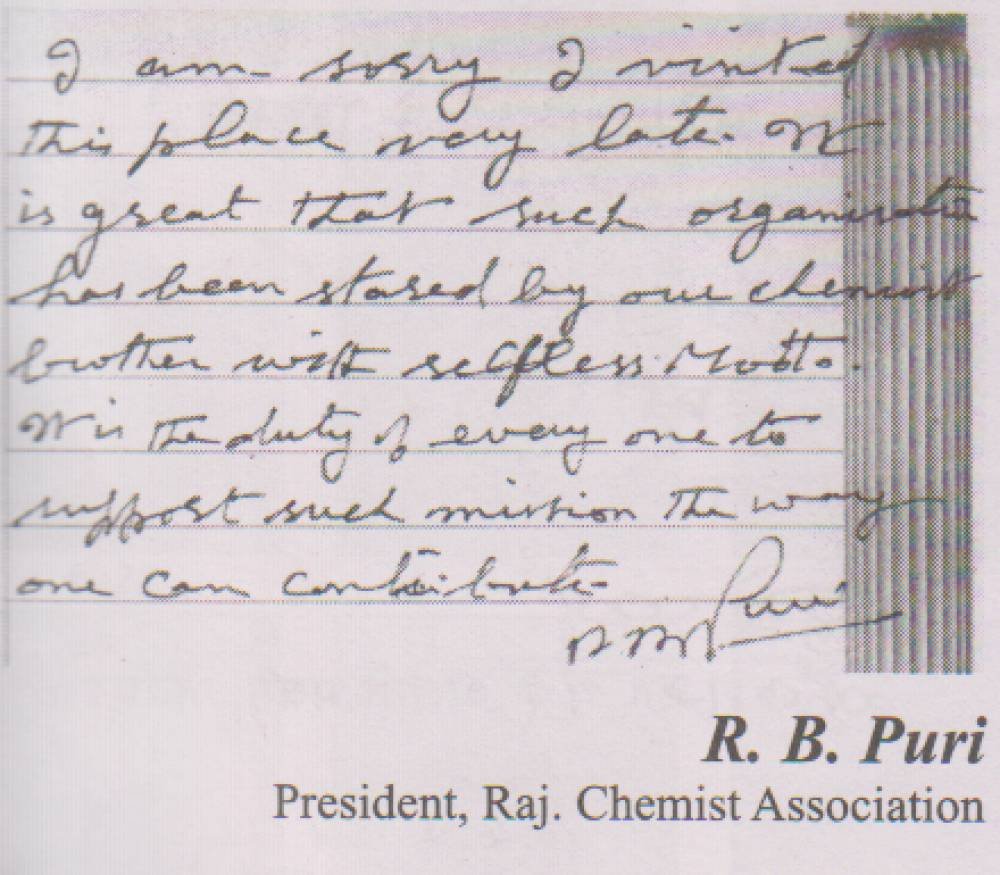 I am sorry I visited
this place very late. It
is great that such organisation
has been stared by our chemist
brother with selfless Motto.
It is the duty of every one to
support such mission the way
one can contribute
R. B. Puri
President, Raj. Chemist Association